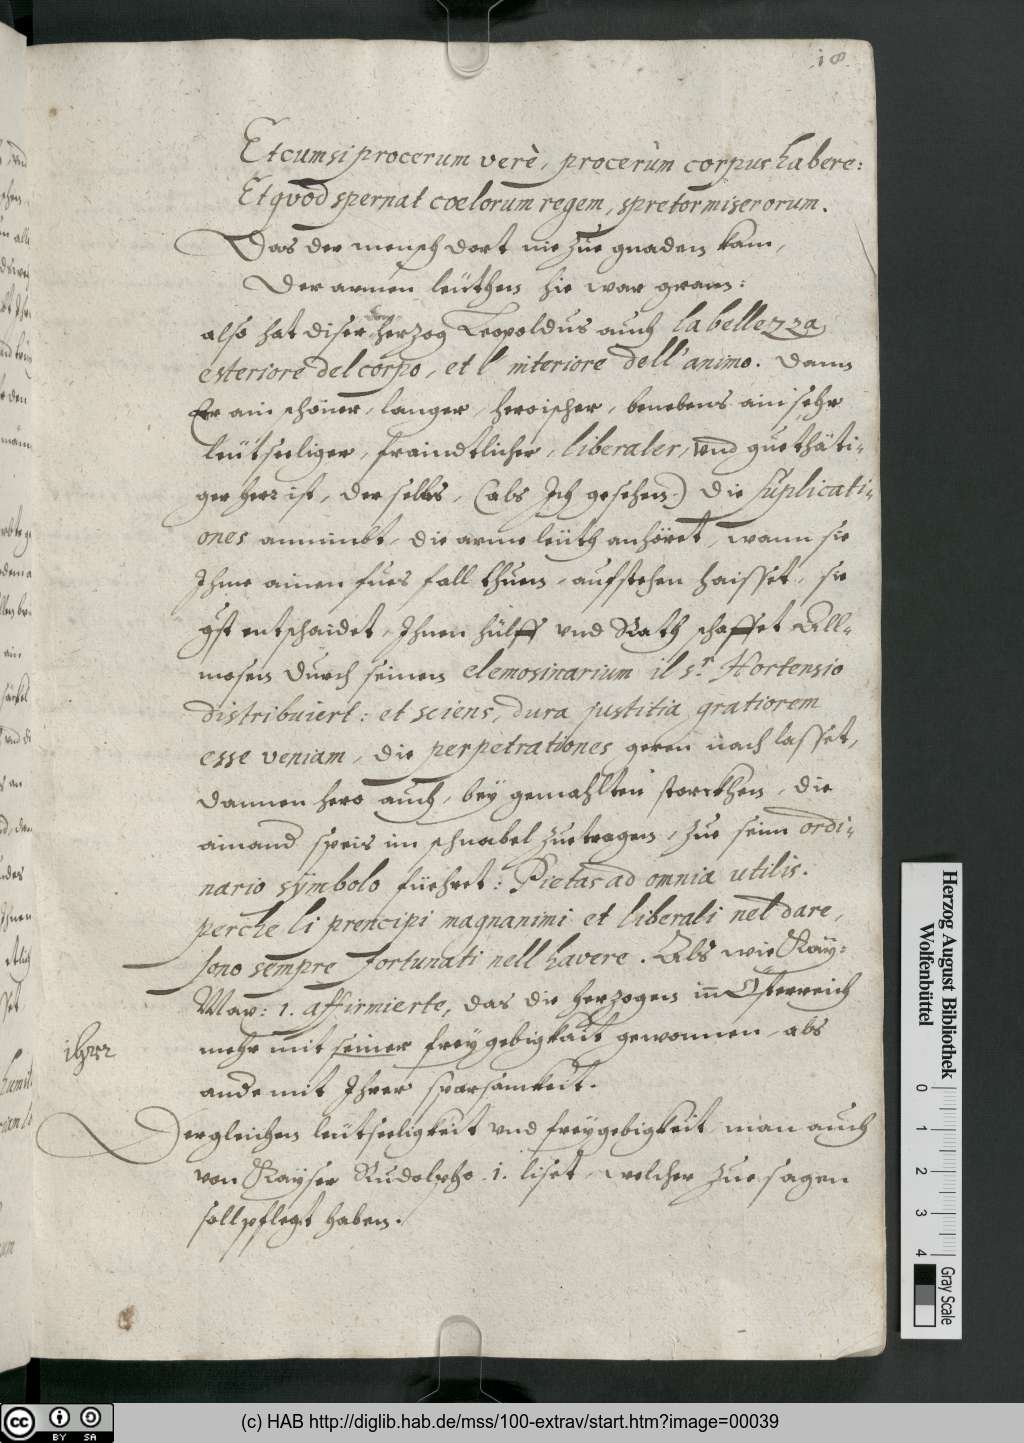 18.
Et cum si procerum verè, procerùm corpus habere:
Et qvod spernat cœlorum regem, spretor miserorum.
Das der mensch dort nie zue gnaden kam,
Der armen leüthen hie war gram:
also hat diser herzog Leopoldus auch la bellezza
esteriore del corpo, et l' interiore dell' animo. Dann
Er ain schöner, langer, heroischer, benebens ain sehr
leütseeliger, fraindtlicher, liberaler, vnd guethäti-
ger herr ist, der selbs, (als Ich gesehen.) die supplicati-
ones annimbt, die arme leüth anhöret, wann sie
Ihme ainen fues fall thuen, aufstehen haisset, sie
entschaidet, Ihnen hülff vnd Rath schaffet All-
mosen durch seinen elemosinarium il s.r Hortensio
distribuiert: et sciens, dura justitia gratiorem
esse veniam, die perpetrationes geren nach lasset,
dannen hero auch, bey gemahlten storckhen, die
ainand speis im schnabel zuetragen, zue seim ordi-
nario sÿmbolo füehret: Pietas ad omnia utilis.
perche li prencipi magnanimi et liberali nel dare,
sono sempre fortunati nell havere. Als wie Kaÿ:
Max: 1. affirmierte, das die herzogen in Österreich
mehr mit seiner freygebigkait gewonnen, als
ande mit Ihrer sparsamkeit.
ihrer
Dergleichen leütseeligkeit vnd freygebigkeit man auch
von Kayser Rudolpho .1. liset, welcher zue sagen
soll pflegt haben.
Herzog August Bibliothek
Wolfenbüttel
0 1 2 3 4
Gray Scale
cc BY SA
(c) HAB http://diglib.hab.de/mss/100-extrav/start.htm?image=00039